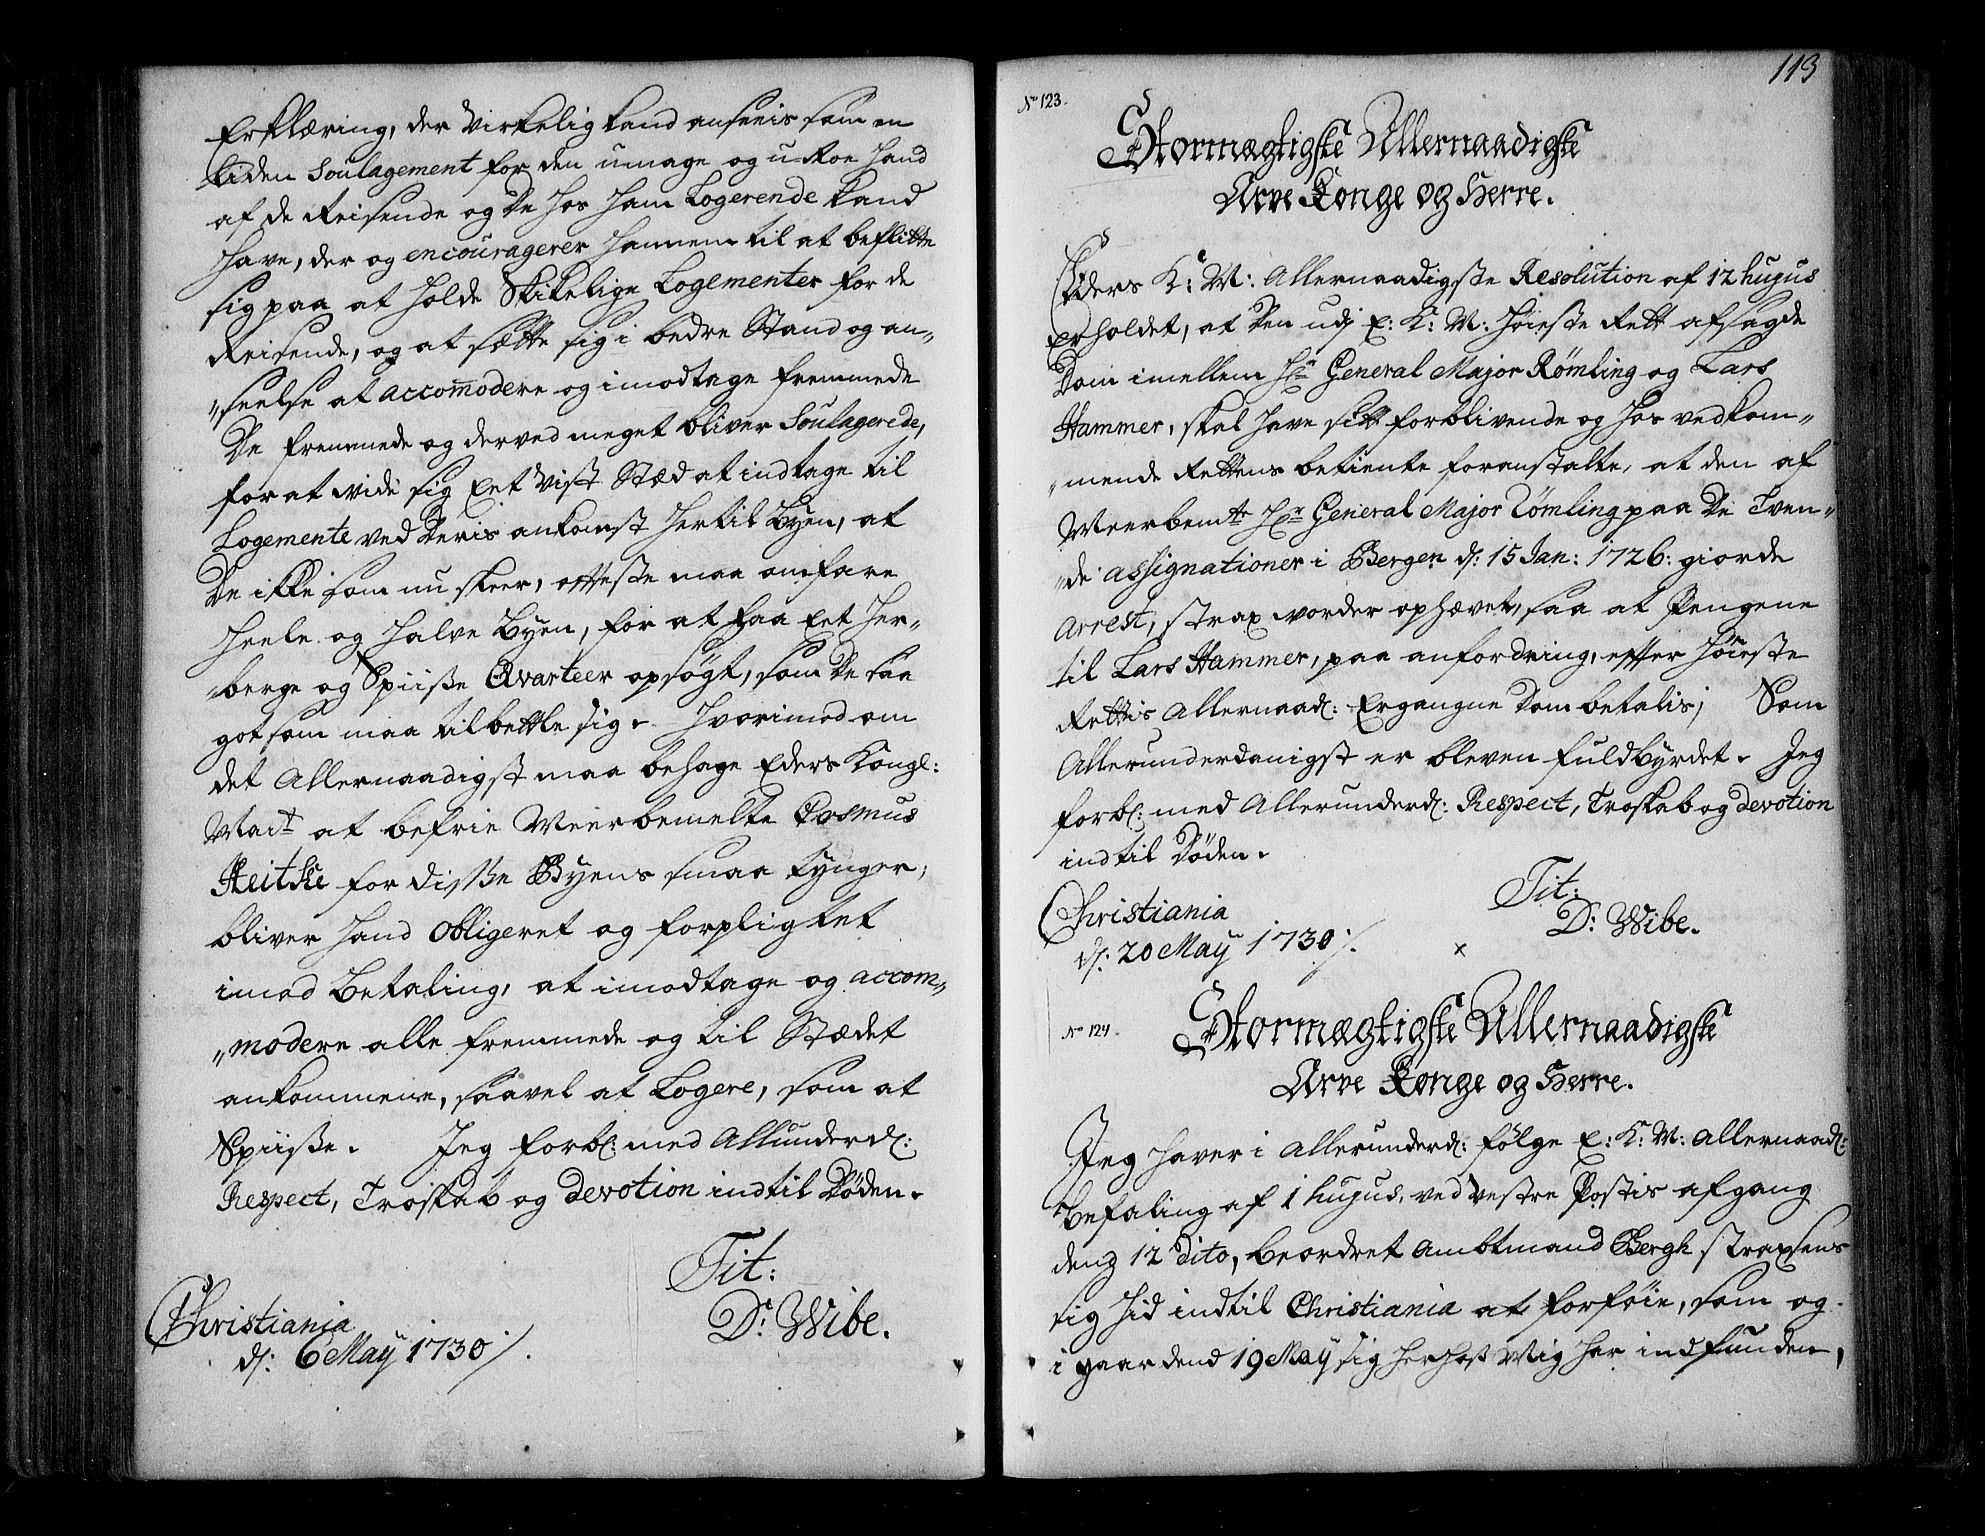 Erklæring, der Virkelig kand anseeis som en
liden Soulagement for den umage og u-Roe hand
af de Reisende og De hos ham Logerende kand
have, der og encouragerer hannem til at beflitte
sig paa at holde Skikelige Logementer for de
Reisende, og at sætte sig i bedre Stand og an„
„seelse at accomodere og imodtage fremmede
De fremmede og derved meget bliver Soulagerede,
for at vide sig Eet Vist Stæd at indtage til
Logemente ved Deris ankomst hertil Byen, at
De ikke som nu skeer, offteste maa omfare
heele og halve Byen, for at faa Eet her„
„berge og Spiisse Qvarteer opsøgt, som De saa
got som maa tilbettle sig. Hvorimod om
det Allernaadigst maa behage Eders Kongl:
Mait at befrie Meerbemelte Rasmus
Heitske for disse Byens smaa tynger,
bliver hand obligeret og forpligtet
imod Betaling, at imodtage og accom„
„modere alle fremmede og til Stædet
ankommene, saavel at Logere, som at
Spiisse. Jeg forbl: med Allunderd:
Respect, Troskab og devotion indtil Døden.
Tit:
D: Wibe.
Christiania
d: 6 May 1730 ·/.
113
No 123.
Stormægtigste Allernaadigste
Arve Konge og Herre.
Eders K: M: Allernaadigste Resolution af 12 hujus
Erholdet, at Den udj E: K: M: Høieste Rett afsagde
Dom imellem Hr General Major Rømling og Lars
Hammer, skal have sitt forblivende og hos vedkom„
„mende Rettens betiente foranstalte, at den af
Meerbemte Hr General Major Rømling paa De Tven„
„de assignationer i Bergen d: 15 Jan: 1726: giorde
Arrest, strax vorder ophævet, saa at Pengene
til Lars Hammer, paa anfordring, effter Høieste
Rettis Allernaad: Ergangne Dom betalis; Som
Allerunderdanigst er bleven fuldbyrdet. Jeg
forbl: med Allerunderd: Respect, Troskab og devotion
indtil Døden.
Tit:
D: Wibe.
Christiania
d: 20 May 1730 ·/.
x
No 124.
Stormægtigste Allernaadigste
Arve Konge og Herre.
Jeg haver i Allerunderd: følge E: K: M: Allernaad:
Befaling af 1 hujus, ved Vestre Postis afgang
denz 12 dito, beordret Ambtmand Bergh straxens
sig hid indtil Christiania at forføie, som og
i gaar dend 19 May sig her hos Mig har indfunden,